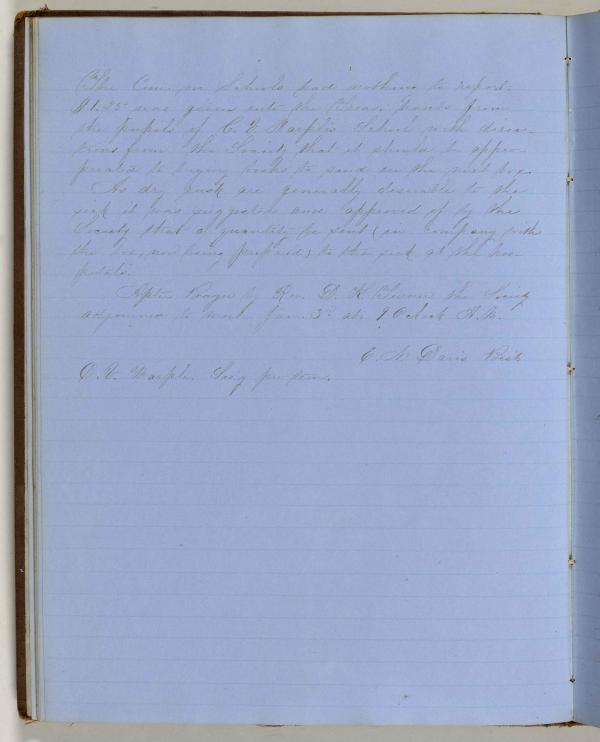 The Com. on Schools had nothing to report.
$1.25 was given into the Treas. hands from
the pupils of C. V. Marple's School with direc-
tions from the Society that it should be appro-
priated to buying books to send in the next box.
As dry rusk are generally desirable to the
sick it was suggested and approved of by the
Society that a quantity be sent (in company with
the box, now being prepared) to the sick at the hos-
pitals.
After Prayer by Rev. D. K. Turner the Society
adjourned to meet Jan. 3d at 9 O'clock A.M.
E. N. Davis Prest.
C. V. Marple. Sec'y pro tem.